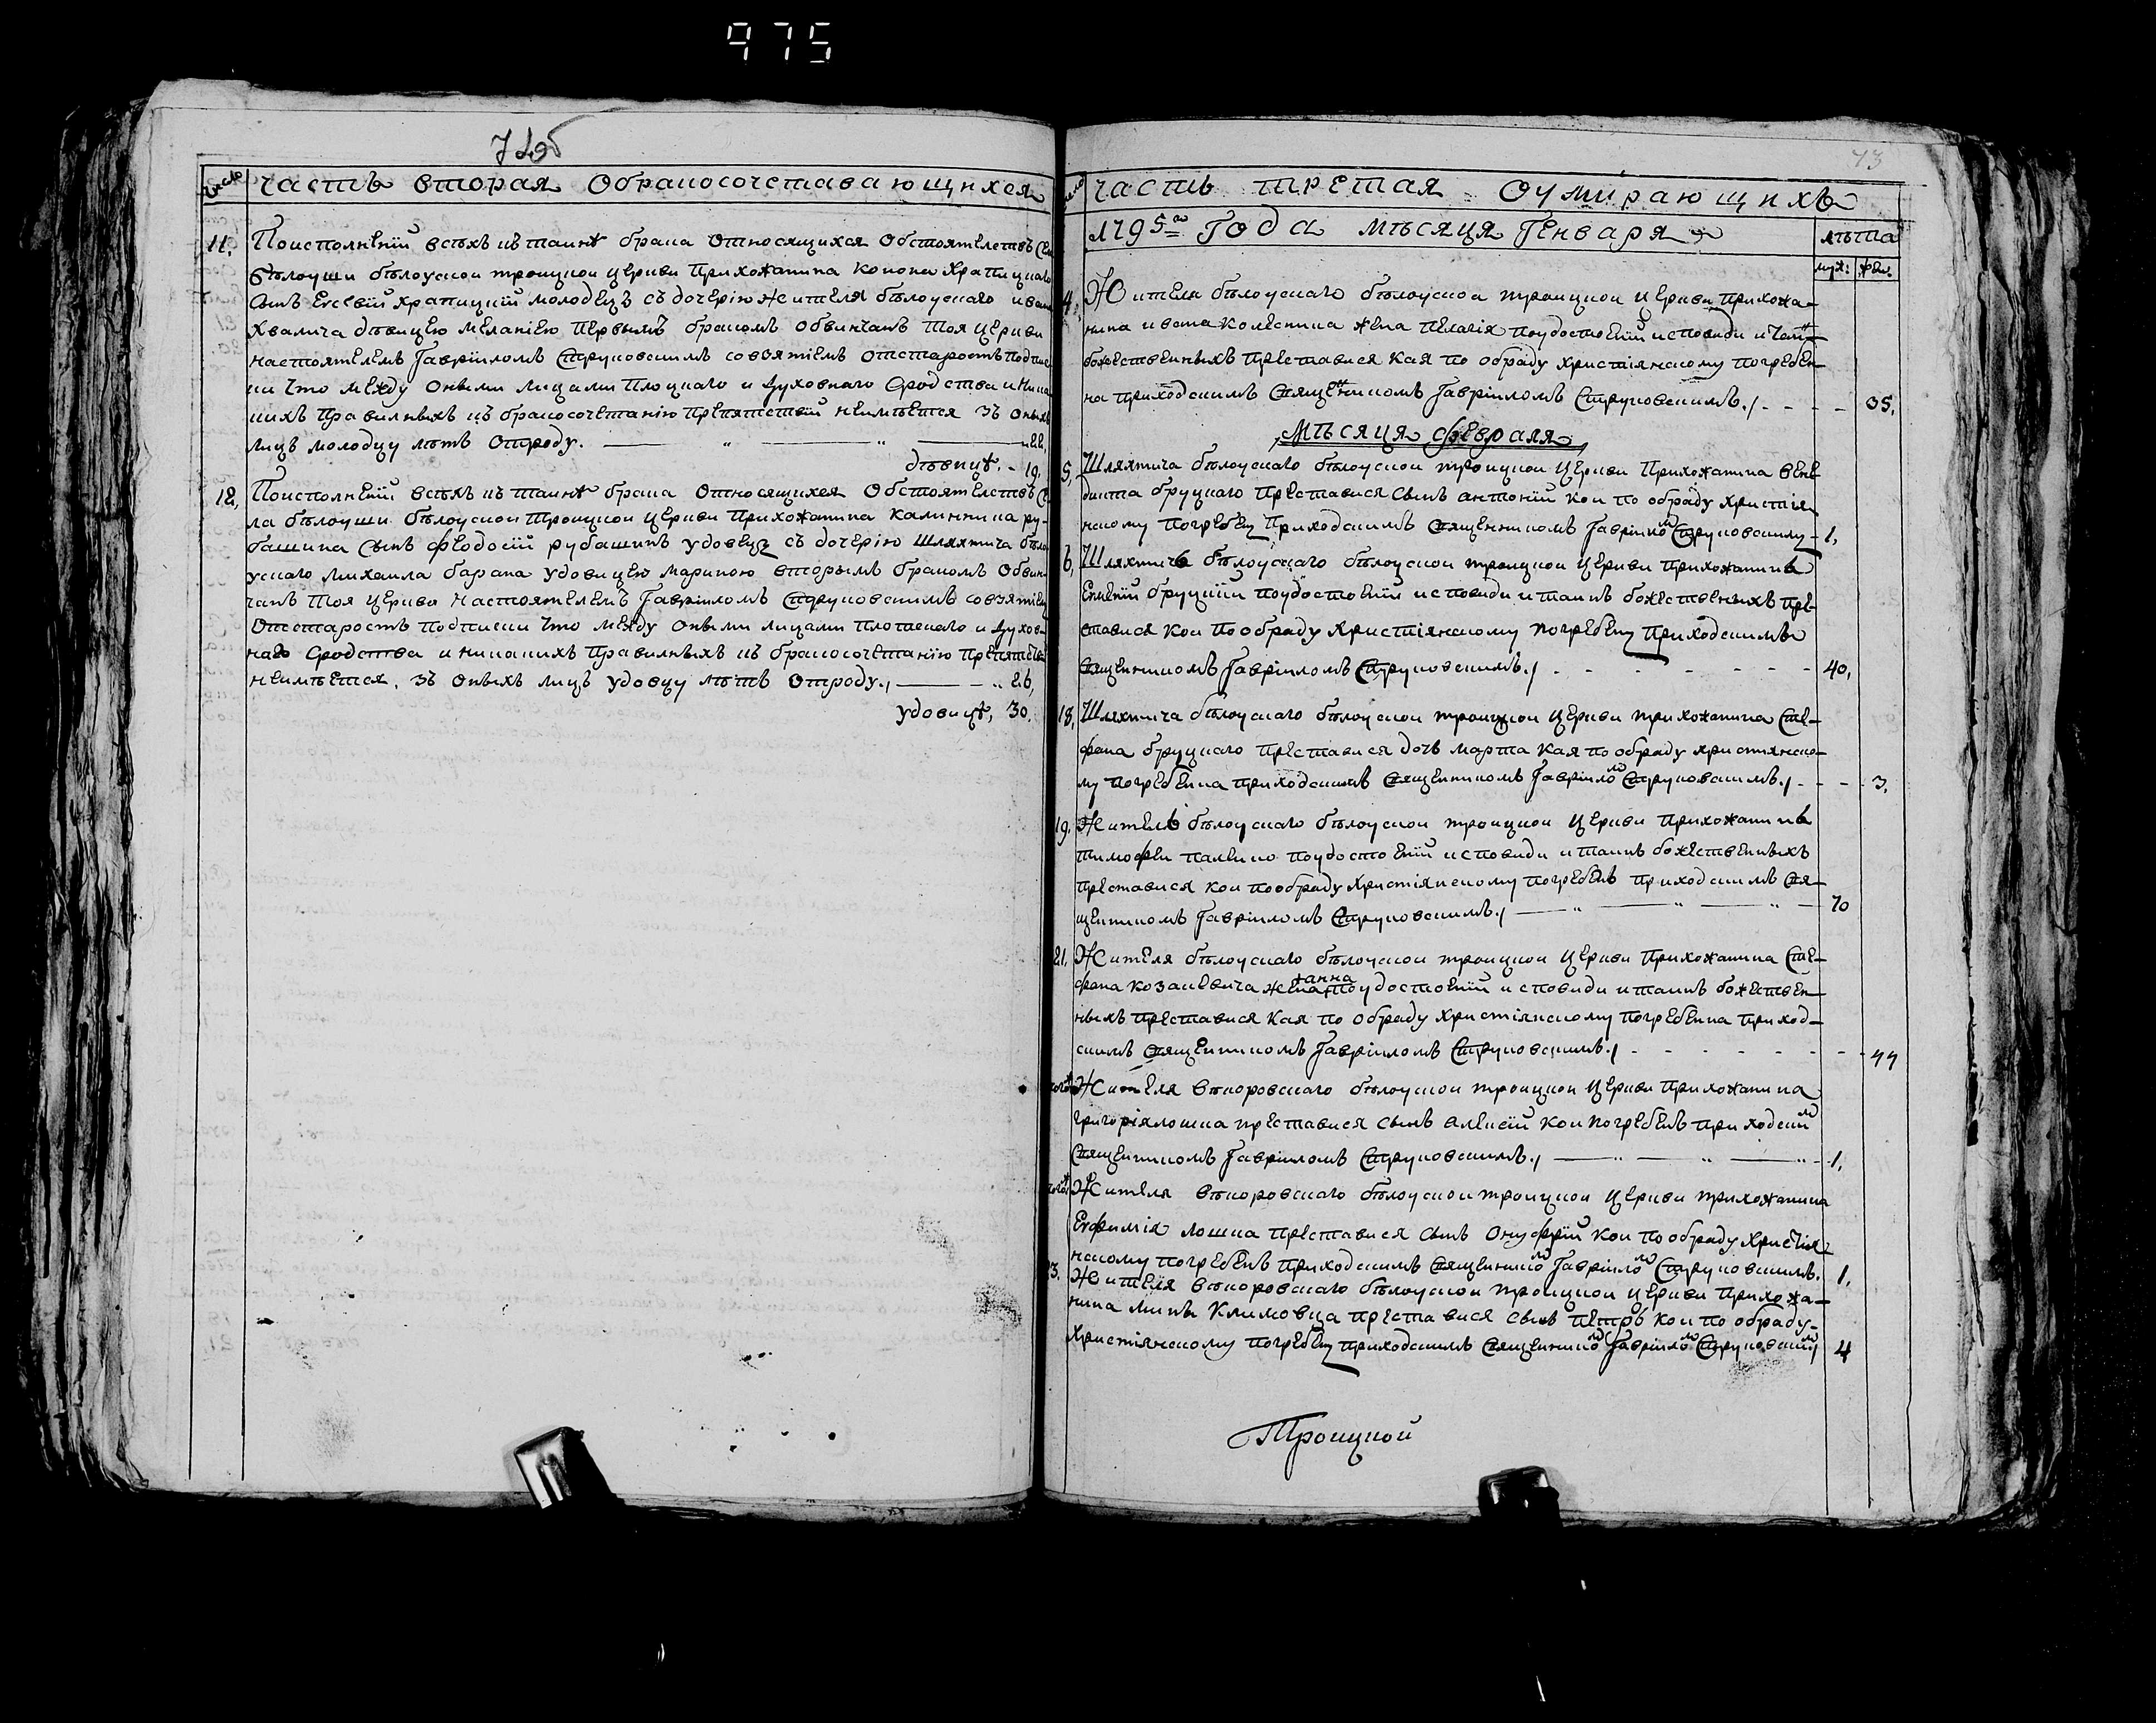 975
число
часть вторая Обракосочетавающихся
11. По исполненіи всѣхъ къ таинѣ брака относящихся обстоятелствъ Се
бѣлоуши бѣлоуской троицкой церкви прихожанина Конона Храпицкаго
Сынъ Евсевій Храпицкій молодецъ съ дочерію жителя бѣлоускаго ивана
Хвалича дѣвицею меланіею первымъ бракомъ обвинчанъ тоя церкви
настоятелемъ Гавріиломъ Струковскимъ со взятіемъ от старостъ подпис
ки что между оными лицами плоцкаго и духовнаго сродства и ника
кихъ правилныхъ къ бракосочетанію препятствій неимѣется зъ оныхъ
лицъ молодцу лѣтъ отроду. 22.
дѣвицѣ. 19.
12. По исполненіи всѣхъ къ таинѣ брака относящихся обстоятелствъ Се
ла бѣлоуши бѣлоуской троицкой церкви прихожанина Калинника ру-
башина Сынъ Феодосій рубашинъ удовецъ съ дочерію шляхтича бѣло
ускаго михаила барана удовицею мариною вторымъ бракомъ обвин
чанъ тоя церкви настоятелемъ Гавріиломъ Струковскимъ со взятіем
от старостъ подписки что между оными лицами плотскаго и духов-
наго сродства и никакихъ правилныхъ къ бракосочетанію препятствій
неимѣется. зъ оныхъ лицъ удовцу лѣтъ отроду./ 26,
удовицѣ, 30.
73
часть третая О умирающихъ
1795го Года мѣсяця Генваря
лѣта
муж: жен:
4. Жителя бѣлоускаго бѣлоуской троицкой церкви прихожа-
нина ивана колесника жена пелагія по удостоеніи исповѣди и таинъ
божественныхъ преставися кая по обряду христіянскому погребен-
на приходскимъ Священникомъ Гавріиломъ Струковскимъ./ 35.
Мѣсяця февраля
5, Шляхтича бѣлоускаго бѣлоуской троицкой церкви прихожанина вене
дикта бруцкаго преставися Сынъ антоній кой по обряду христія
нскому погребен приходскимъ Священникомъ Гавріилом Струковским 1,
6, Шляхтичъ бѣлоускаго бѣлоуской троицкой церкви прихожанинъ
бруцкій по удостоеніи исповѣди и таинъ божественыхъ пре-
ставися кой по обряду христіянскому погребен приходскимъ
Священникомъ Гавріиломъ Струковскимъ./ 40,
18, Шляхтича бѣлоускаго бѣлоуской троицкой церкви прихожанина Сте-
фана бруцкаго преставися дочь марта кая по обряду христіянско-
му погребенна приходскимъ Священникомъ Гавріилом Струковскимъ./ 3.
19. Жителъ бѣлоускаго бѣлоуской троицкой церкви прихожанинъ
тимофей по удостоеніи исповѣди и таинъ божественныхъ
преставися кой по обряду христіянскому погребенъ приходскимъ Свя-
щенникомъ Гавріиломъ Струковскимъ./ 70
21. Жителя бѣлоускаго бѣлоуской троицкой церкви прихожанина Сте-
фана козакевича жена анна по удостоеніи исповѣди и таинъ божествен-
ныхъ преставися кая по обряду христіянскому погребенна приход-
скимъ Священникомъ Гавріиломъ Струковскимъ./ 44
Жителя вѣкоровскаго бѣлоуской троицкой церкви прихожанина
григорія лошка преставися Сынъ алексій кой погребенъ приходским
Священникомъ Гавріиломъ Струковскимъ./ 1,
Жителя вѣкоровскаго бѣлоуской троицкой церкви прихожанина
Евфимія лошка преставися Сынъ Онуфрій кой по обряду Христія
нскому погребенъ приходскимъ Священником Гавріилом Струковскимъ. 1,
3. Жителя вѣкоровскаго бѣлоуской троицкой церкви прихожа-
нина Климовца преставися Сынъ петръ кой по обряду
Христіянскому погребен приходскимъ Священником Гавріилом Струковским/ 4
Троицкой